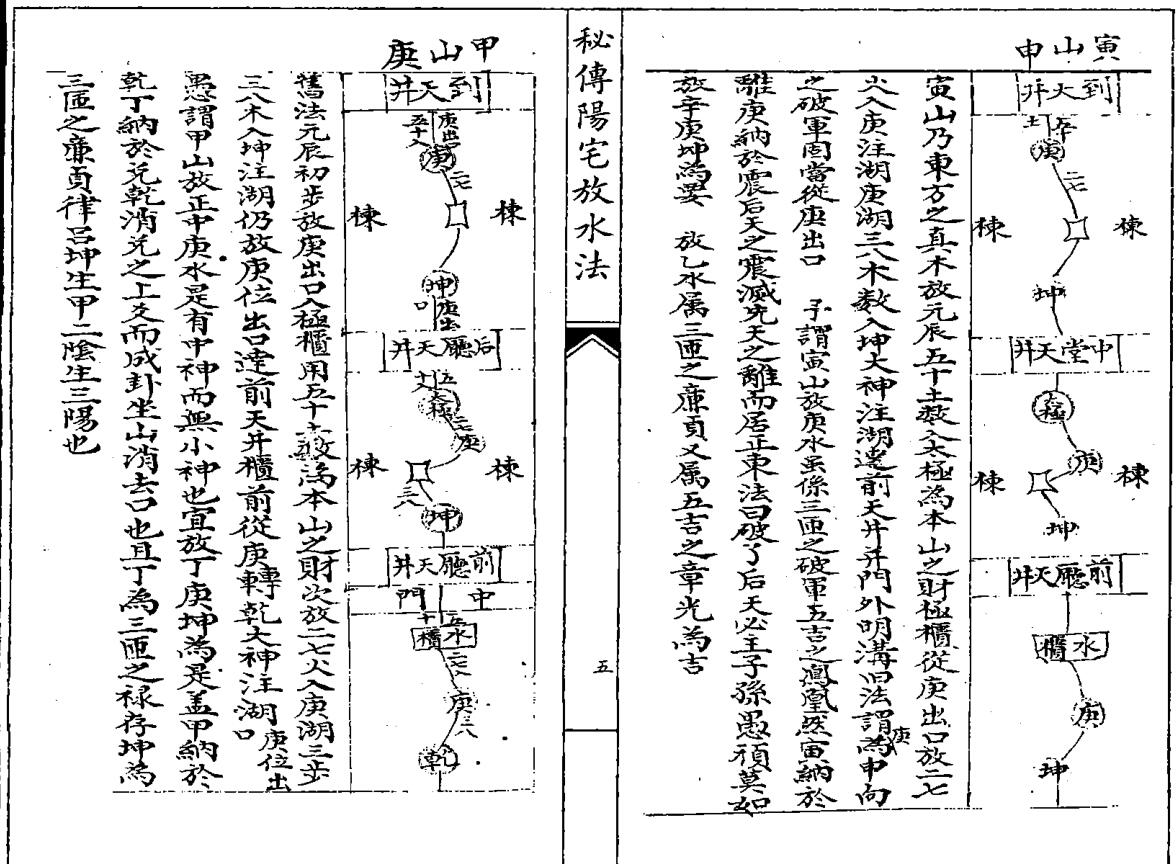 寅山申
到天井
五十
土
庚
二七
棟
棟
坤
中堂天井
太極
庚
棟
棟
坤
前廳天井
水櫃
庚
坤
寅山乃東方之真木放元辰五十土数入太極為本山之財極櫃從庚出口放二七
火入庚注湖庚湖三八木数入坤大神注湖達前天井并門外明溝旧法謂庚為申向
之破軍固當從庚出口 予謂寅山放庚水虽係三匝之破軍五吉之鳳凰然寅納於
離庚納於震后天之震滅先天之離而居正東法曰破了后天必主子孫愚頑莫如
放辛庚坤為妥 放乙水屬三匝之廉貞又屬五吉之章光為吉
秘傳陽宅放水法
五
甲山庚
到天井
庚出口
五十入
庚
二七
棟
棟
坤
庚出口
后廳天井
五十入
太極
二七
庚
棟
棟
三八
坤
前廳天井
中門
五十
水櫃
二七
庚
三八
乾
舊法元辰初步放庚出口入極櫃用五十土数為本山之財次放二七火入庚湖三步
三八木入坤注湖仍放庚位出口達前天井櫃前從庚轉乾大神注湖庚位出口
愚謂甲山放正中庚水是有中神而無小神也宜放丁庚坤為是盖甲納於
乾丁納於兌乾消兌之上爻而成卦坐山消去口也且丁為三匝之禄存坤為
三匝之廉貞律呂坤生甲二陰生三陽也